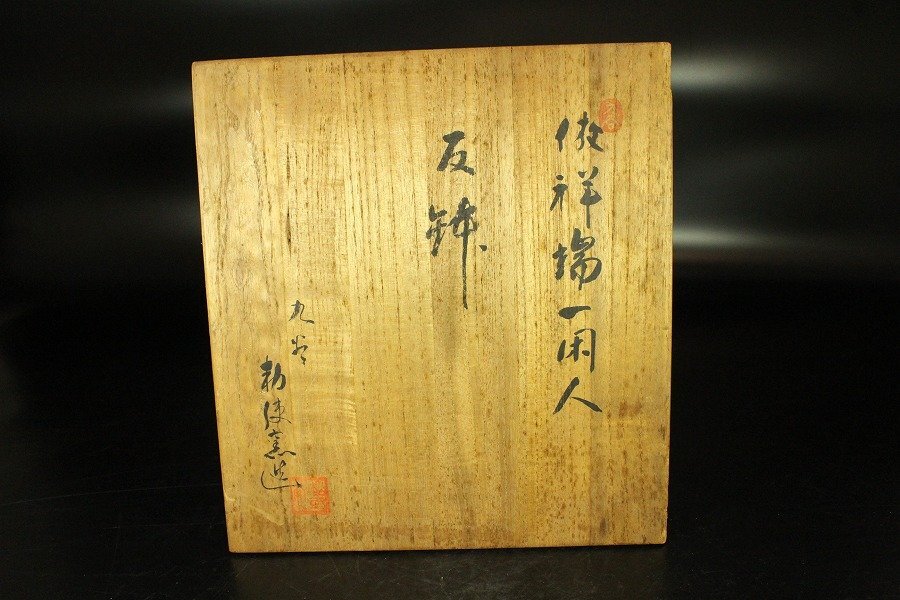 倣祥瑞一閑人
反鉢
九谷
勅使窯造